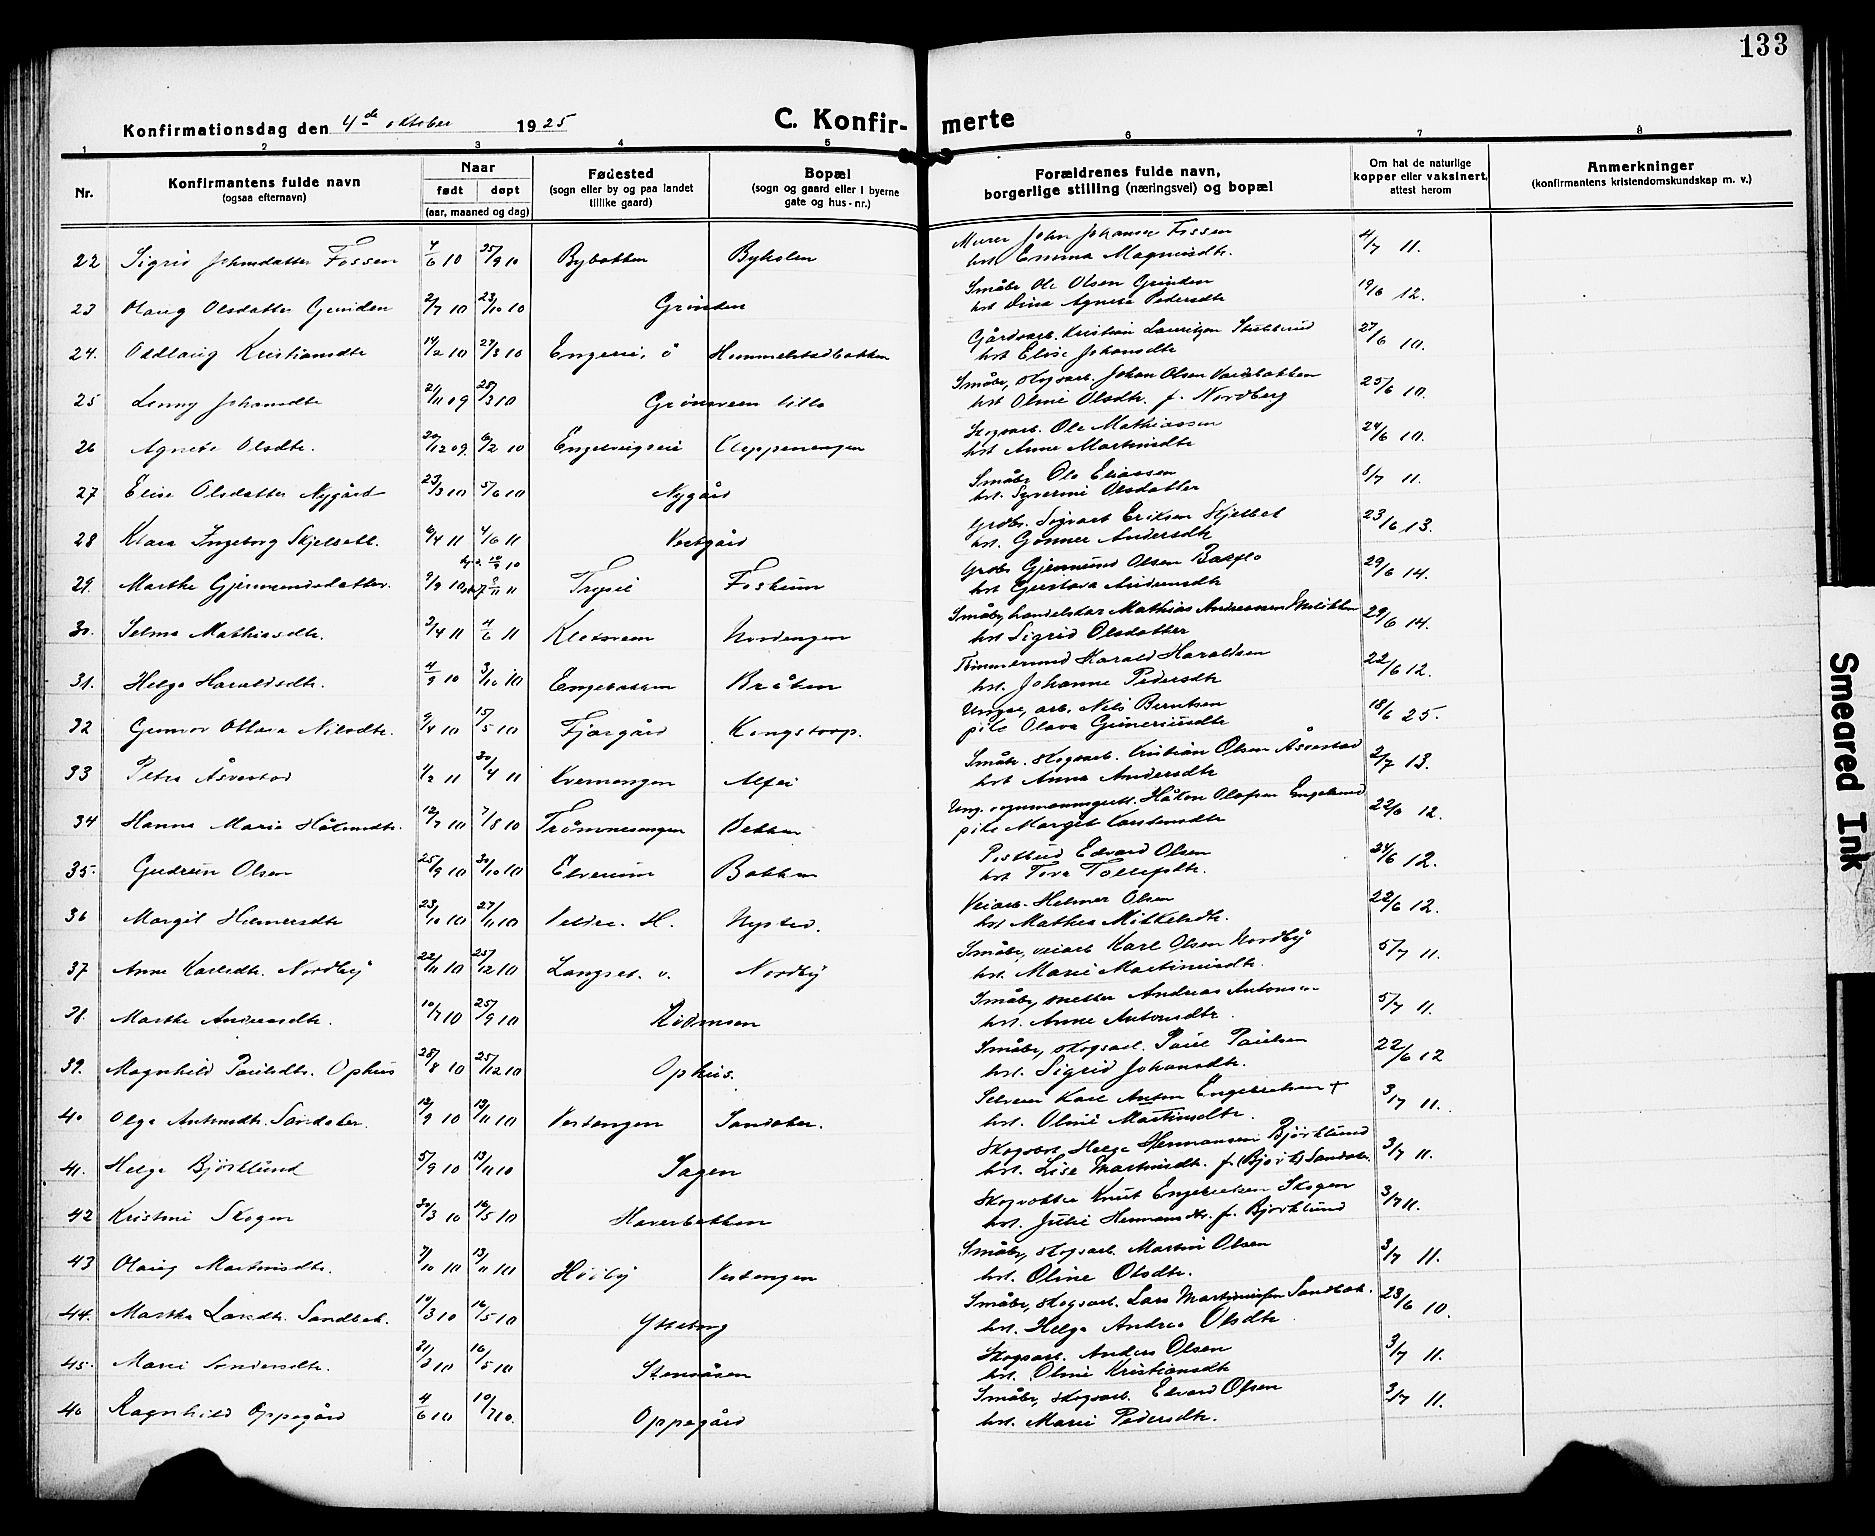 133
Konfirmationsdag den 4de oktober 1925
C. Konfir- merte
1 2 3 4 5 6 7 8
Nr.
Konfirmantens fulde navn
(ogsaa efternavn)
Naar
født døpt
(aar, maaned og dag)
Fødested
(sogn eller by og paa landet
tillike gaard)
Bopæl
(sogn og gaard eller i byerne
gate og hus-nr.)
Forældrenes fulde navn,
borgerlige stilling (næringsvei) og bopæl
Om hat de naturlige
kopper eller vaksinert,
attest herom
Anmerkninger
(konfirmantens kristendomskundskap m. v.)
22 Sigrid Johnsdatter Fossen 4/6 10 25/9 10 Bybakken Byholen
Murer John Johansen Fossen 4/7 11.
hst Emma Magnusdtr.
23 Olaug Olsdatter Grinden 2/7 10 23/10 10 Grinden
Småbr Ole Olsen Grinden 19/6 12.
hst Dina Agnese Pedersdtr
24. Oddlaug Kristiansdtr 14/2 10 27/3 10 Engesei, ö Hummelstadbakken
Gårdsarb. Kristian Lauritzen 27/6 10.
hst Elise Johansdtr
25 Lenny Johansdtr 21/11 09 28/3 10 Grönsveen lille
Småbr, skogsarb. Johan Olsen 25/6 10.
hst Oline Olsdtr. f. Nordberg
26 Agnete Olsdtr. 20/12 09 6/2 10 Kleppenengen
Skogsarb. Ole Mathiassen 24/6 10.
hst Anne Martinsdtr
27 Elise Olsdatter Nygård 23/3 10 5/6 10 Nygård
Småbr Ole Eliassen 8/7 11.
hst. Syverine Olsdatter
28 Klara Ingeborg Skjelset. 6/4 11 4/6 11 Vestgård
Grdbr. Sigvart Eriksen Skjelset 23/6 13.
hst. Gunner Andersdtr
29. Marthe Gjermundsdatter. 9/9 10 Trysil Foskum
Grdbr Gjermund Olsen 29/6 14.
hst Gustava Andersdtr
30. Selma Mathiasdtr. 2/4 11 4/6 11 Nordengen
Småbr, handelskar Mathias Andreassen 29/6 14.
hst Sigrid Olsdatter
31. Helga Haraldsdtr. 4/9 10 3/10 10 Engebakken Bråten
Tömmermand Harald Haraldsen 22/6 12.
hst. Johanne Pedersdtr
32 Gunvor Ottara Nilsdtr. 9/4 10 15/5 10 Fjærgård Kongstorp.
Ungar, arb. Nils Berntsen 18/6 25.
pike Olava Guneriusdtr
33 Petra Åsvestad 1/2 11 30/4 11 Kvernengen Alfei
Småbr. skogsarb. Kristian Olsen Åsvestad 2/7 13.
hst Anna Andersdtr
34 Hanna Maria Håkonsdtr. 12/7 10 7/8 10 Trömnesengen Bekken
Håkon Olafsen Engelund 22/6 12.
pike Margit Karstensdtr
35. Gudrun Olsen 25/9 10 30/10 10 Elverum Bakken
Postbud Edvard Olsen 24/6 12.
hst Tora Tollefsdtr.
36 Margit Helmersdtr 23/10 10 27/11 10 Veldre. H. Nysted.
Veiarb. Helmer Olsen 22/6 12.
hst Mathea Mikkelsdtr.
37 Anne Karlsdtr. Nordby 22/11 10 25/12 10 Langset. v. Nordby
Småbr, veiarb Karl Olsen Nordby 5/7 11.
hst. Marie Martinusdtr.
38. Marthe Andersdtr. 10/7 10 25/9 10
Småbr, snekker Andreas Antonsen 5/7 11.
hst. Anne Antonsdtr.
39. Magnhild Paulsdtr. Ophus 28/8 10 25/12 10 Ophus.
Småbr, skogsarb. Paul Paulsen 22/6 12
hst. Sigrid Johansdtr.
40 Olga Antonsdtr. Sandaker. 12/9 10 13/11 10 Vestengen Sandaker.
Selveier Karl Anton Engebretsen + 3/7 11.
hst. Oline Martinsdtr.
41. Helga Björklund 5/9 10 13/11 10 Sagen
Skogsarb. Helge Hermansen Björklund 3/7 11.
hst. Lise Martinsdtr. f. (Björk) Sandak.
42 Kristine Skogen 30/3 10 16/5 10 Haverbakken
Skogvokter Knut Engebretsen Skogen 3/7 11.
hst. Julie Hermansdtr. f. Björklund
43 Olaug Martinsdtr. 9/10 10 13/11 10 Höiby Vestengen
Småbr, skogsarb. Martin Olsen 3/7 11.
hst. Oline Olsdtr.
44. Martha Larsdtr. Sandbak. 10/3 10 16/5 10 Ytteborg
Småbr, skogsarb. Lars Martiniusen Sandbak. 23/6 10.
hst. Helga Andrea Olsdtr
45. Marie Andersdtr. 31/3 10 16/5 10 Stenåsen
Skogsarb. Anders Olsen 3/7 11.
hst. Oline Kristiansdtr
46 Ragnhild Oppegård 4/6 10 10/7 10. Oppegård
Småbr, skogsarb. Edvard Olsen 3/7 11.
hst. Marie Pedersdtr.
Smeared Ink